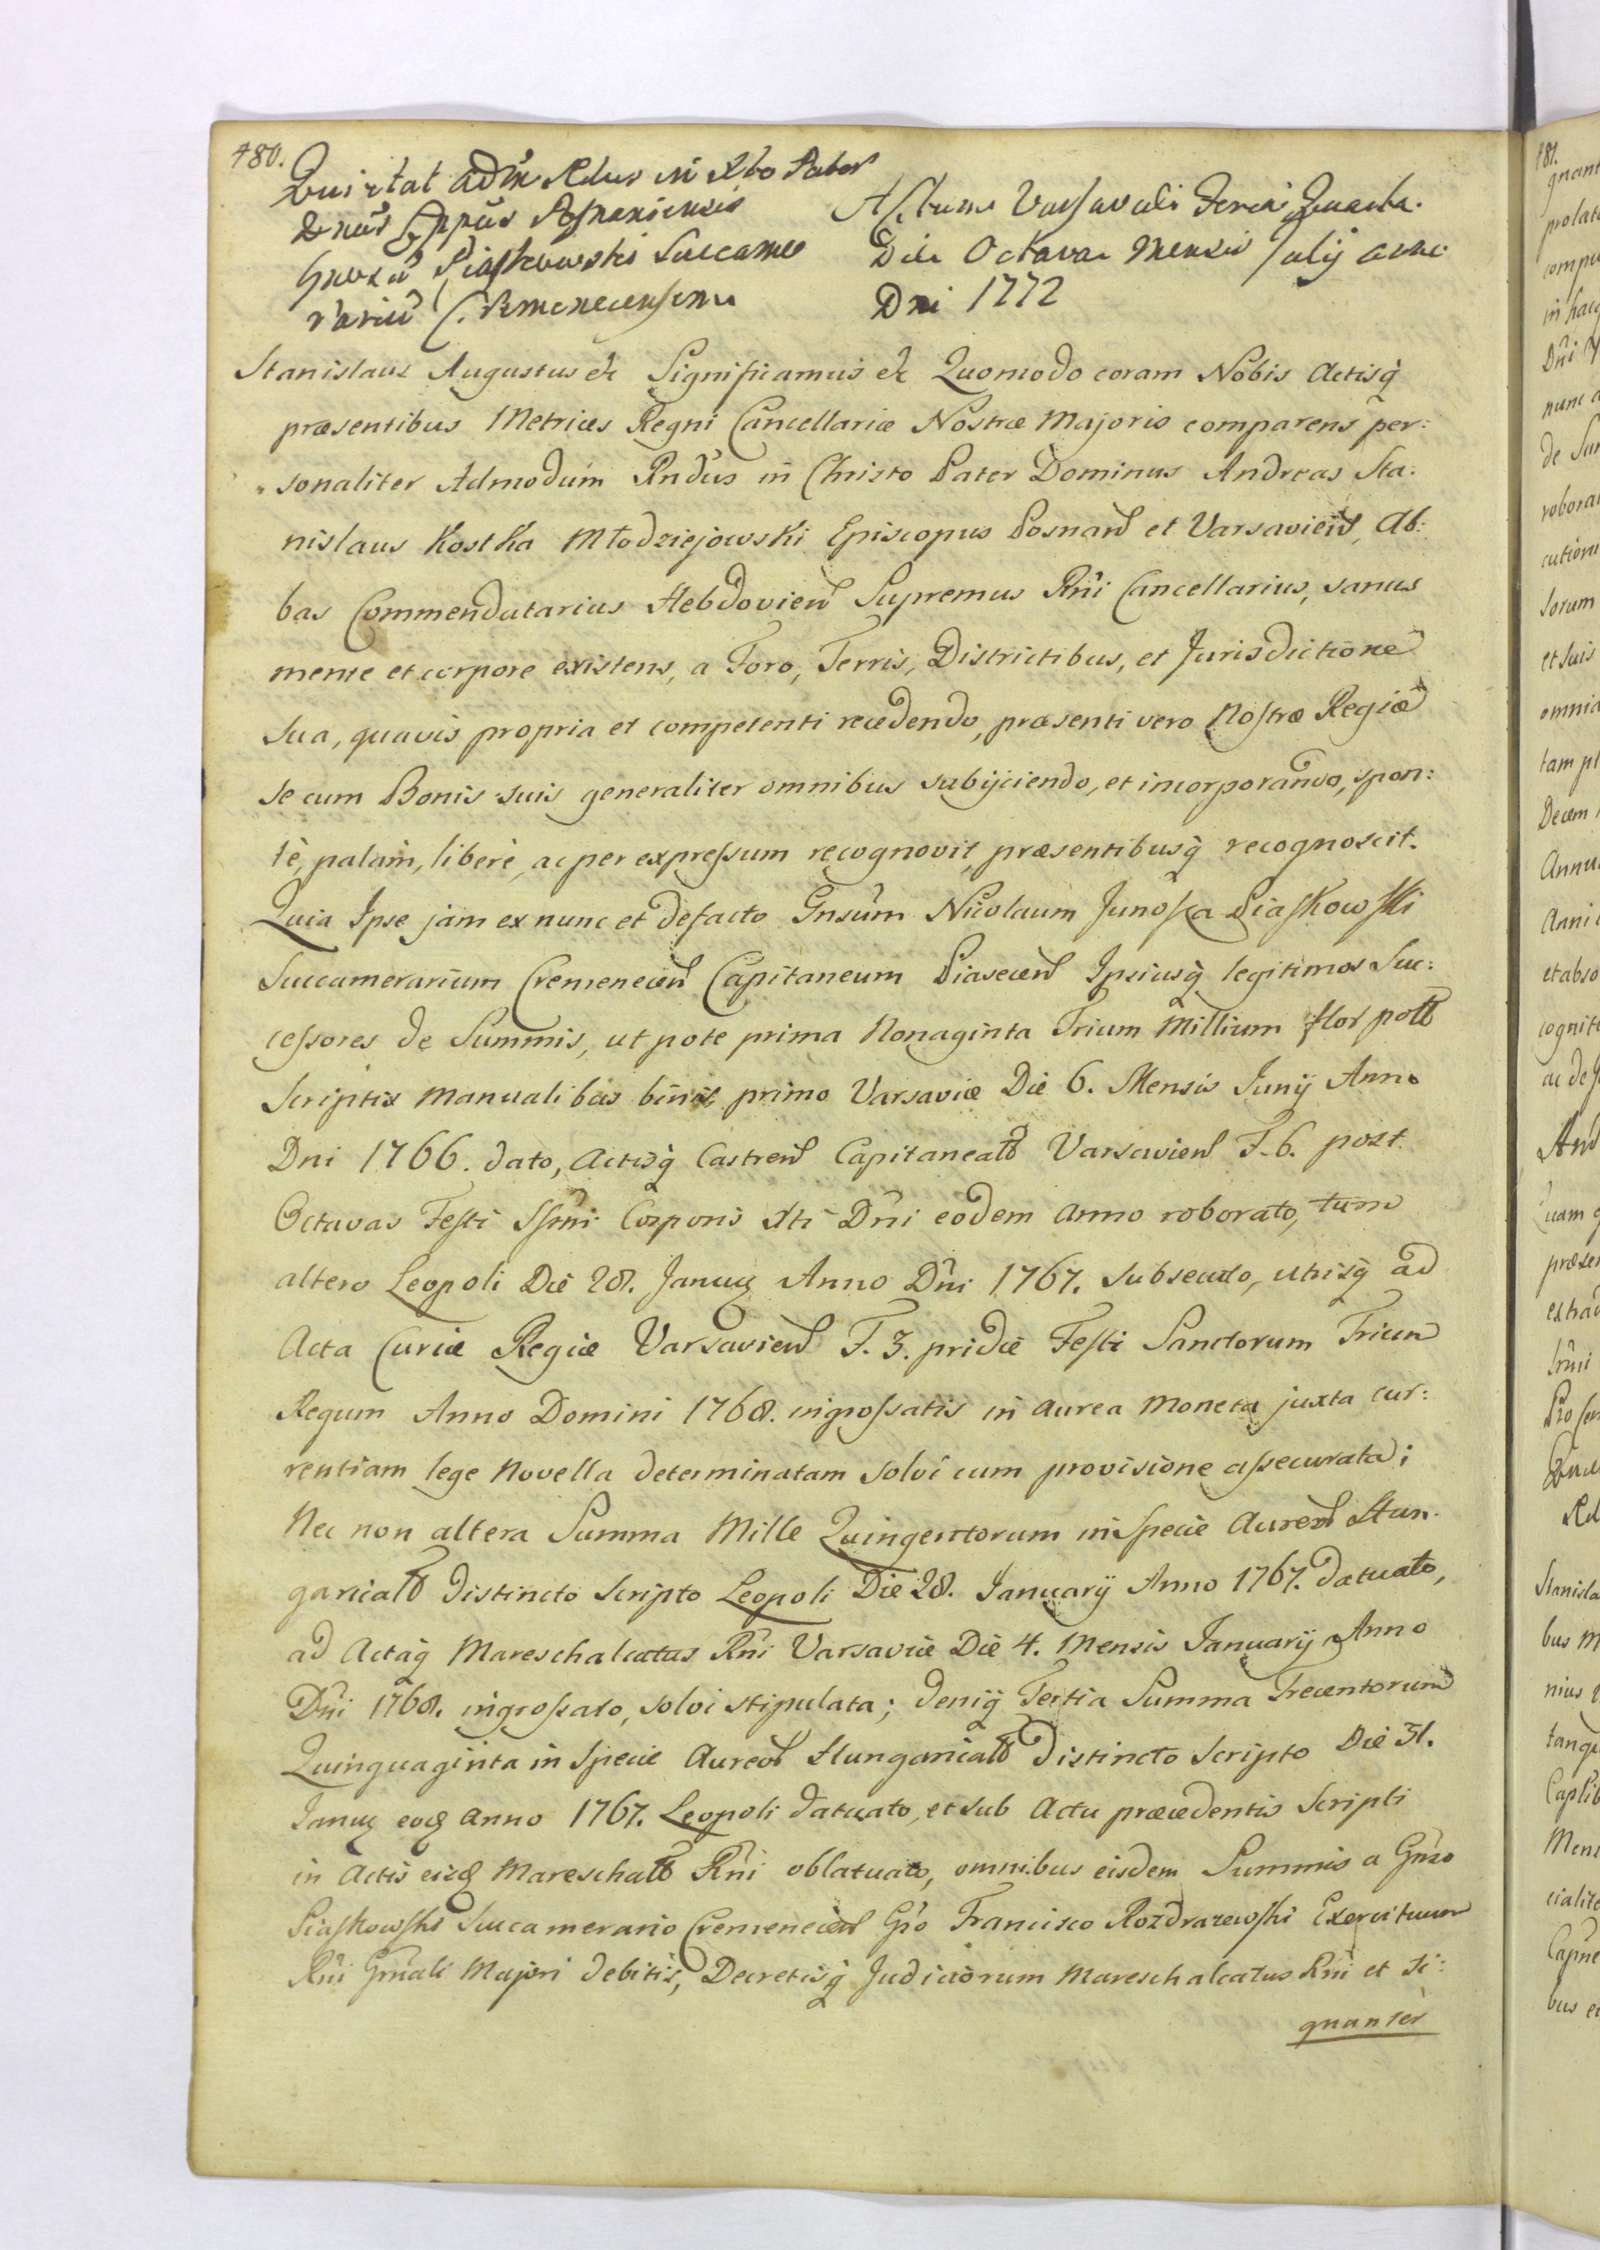 480.
Quietat adm Rdus in Xto Pater
Dnus Eppus Posnaniensis
Gnosu Piaskowski Succame
rariu Cremenecensem
Actum Varsavali Feria Quarta
Die Octava Mensis Julij anni
Dni 1772
Stanislaus Augustus etc Significamus etc Quomodo coram Nobis Actisq
præsentibus Metrices Regni Cancellariæ Nostræ Majoris comparens per:
sonaliter Admodum Rndus in Christo Pater Dominus Andreas Sta:
nislaus Kostka Młodziejowski Episcopus Posnan et Varsavien, Ab:
bas Commendatarius Hebdovien Supremus Rni Cancellarius, sanus
mente et corpore existens, a Foro, Terris, Districtibus, et Jurisdictione
sua, quavis propria et competenti recedendo, præsenti vero Nostræ Regiæ
se cum Bonis suis generaliter omnibus subijciendo, et incorporando, spon:
tè, palàm, liberè, ac per expressum recognovit, præsentibusq recognoscit.
Quia Ipse jam ex nunc et defacto Gnsum Nicolaum Junosza Piaskowski
Succamerarium Cremenecen Capitaneum Piasecen Ipsiusq legitimos Suc:
cessores de Summis, ut pote prima Nonaginta Trium Millium flor poll
Scriptis manualibus binis primo Varsaviæ Die 6. Mensis Junij Anno
Dni 1766. dato, Actisq Castren Capitaneal Varsavien F. 6. post
Octavas Festi Ssmi Corporis Xti Dni eodem Anno roborato, tum
altero Leopoli Die 28. Januar Anno Dni 1767. subsecuto, utrisq ad
Acta Curiæ Regiæ Varsavien F. 3. pridie Festi Sanctorum Trium
Regum Anno Domini 1768. ingrossatis in aurea Moneta juxta cur:
rentiam lege Novella determinatam solvi cum provisione assecurata;
Nec non altera Summa Mille Quingentorum in Specie Aureor Hun:
garical distincto Scripto Leopoli Die 28. Januarij Anno 1767. datuato,
ad Actaq Mareschalcatus Rni Varsaviæ Die 4. Mensis Januarij Anno
Dni 1768. ingrossato, solvi stipulata; deniq Tertia Summa Trecentorum
Quinquaginta in Specie Aureor Hungarical distincto Scripto Die 31.
Januar eod Anno 1767. Leopoli datuato, et sub Actu præcedentis Scripti
in Actis eisd Mareschal Rni oblatuato, omnibus eisdem Summis a Gnso
Piaskowski Succamerario Cremenecen Gso Francisco Rozdrazewski Exercituum
Rni Gnrali Majori debitis, Decretisq Judiciorum Mareschalcatus Rni et si:
gnanter
481.
prolat
in hac
Dni
nunc
de Sum
robora
cutione
sorum
et suis
omnia
tam pl
Decem
Annu
Anni
et abso
cognit
ac de
præsen
extra
Stanisla
bus M
nius
tanq
Mens
cialite
bus e